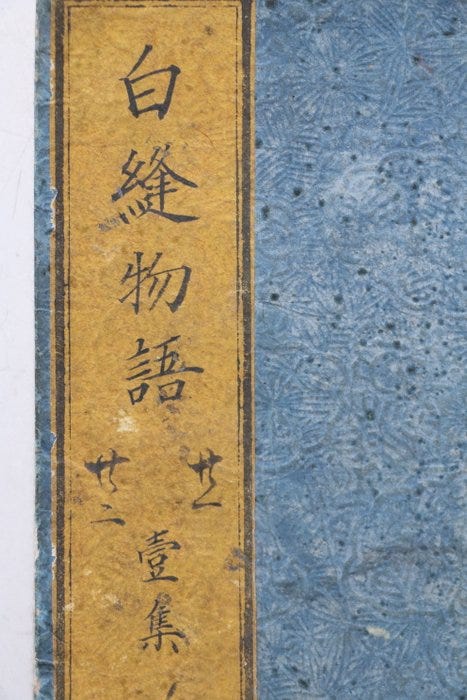 白縫物語
廿一
廿二
壹集